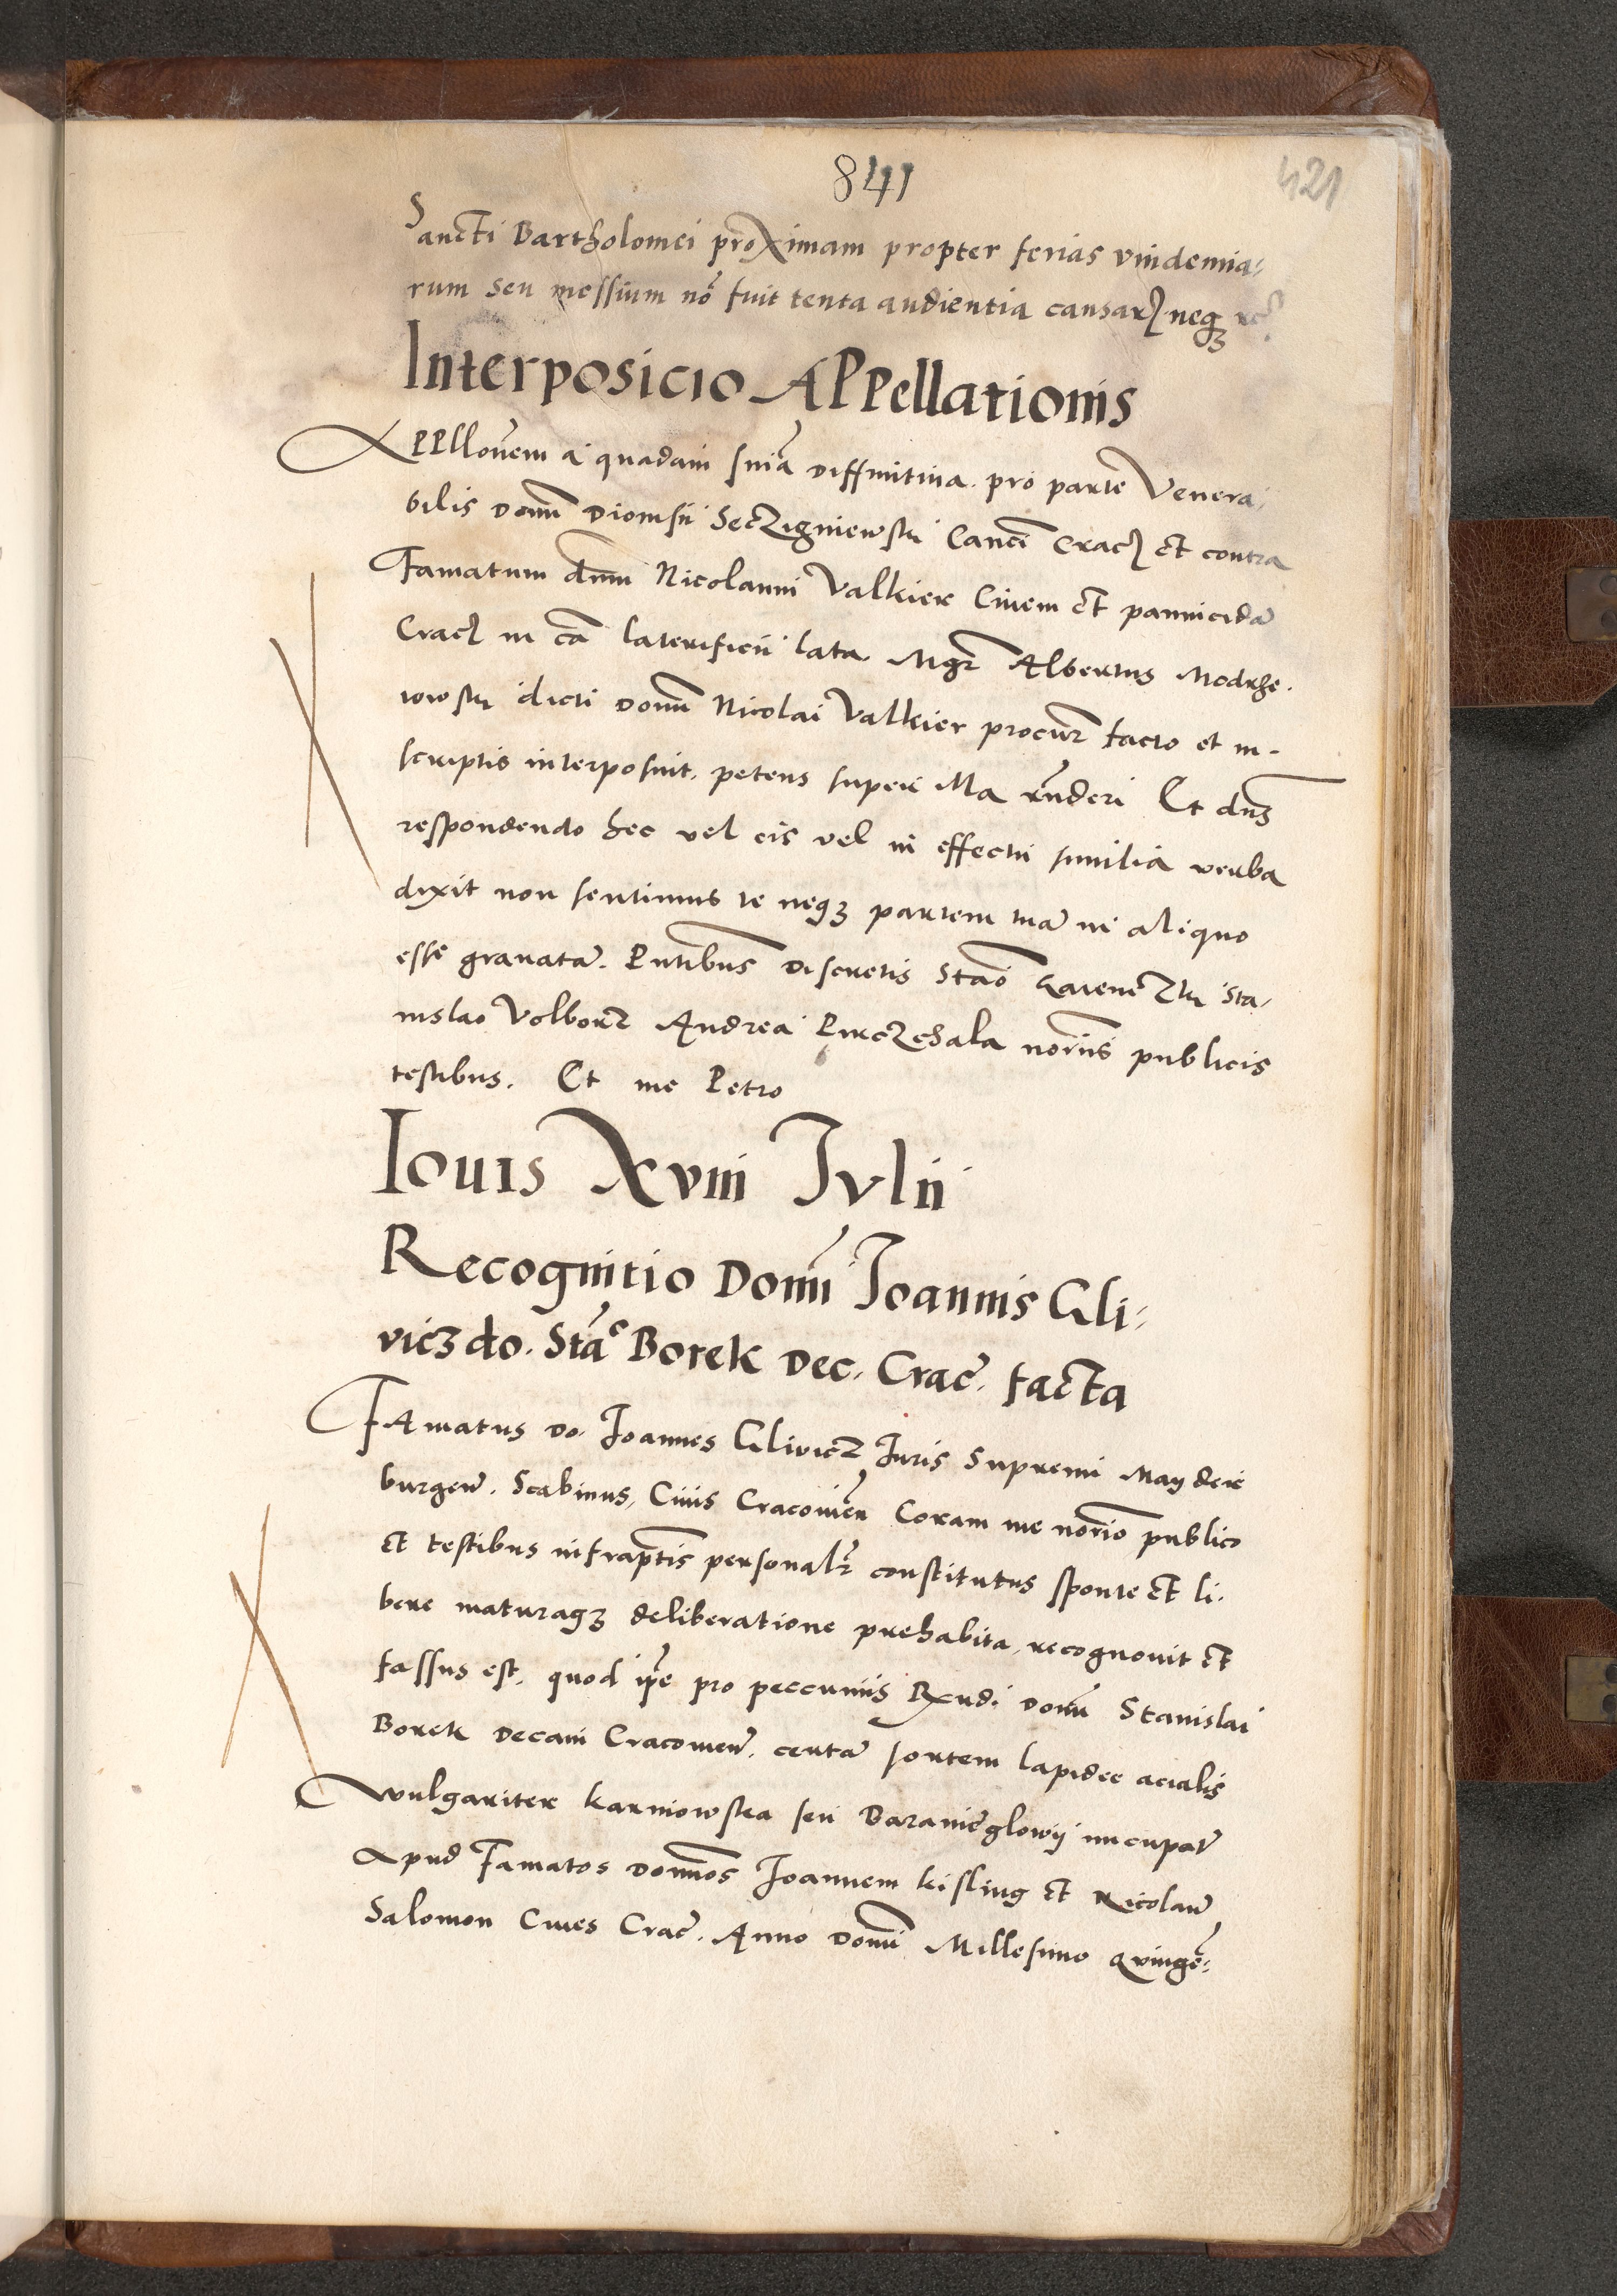 841
421
Sancti Bartholomei proximam propter ferias vindemia-
rum seu messium nõ fuit tenta audientia causarꝝ neqꝫ
Interposicio Appellationis
Appllõnem a quadam snĩa diffinitiua pro parte Venera-
bilis domĩ Dionisii Seczigniewsky Canci Cracꝭ et contra
Famatum dnm Nicolaum Valkier Ciuem et pannicidã
Cracꝭ in cã laterificii lata Mgr̃ Albertus Modrze-
iowsky dicti domĩ Nicolai Valkier procur̃ facto et in-
scriptis interposuit, petens super illa rñderi Et dns
respondendo hec vel eis vel in effectu similia verba
dixit non sentimus te neqꝫ partem tuã in aliquo
esse grauatã. Pñtibus discretis Stão Sta-
nislao Volborz Andrea Pirczchala norĩis publicis
testibus. Et me Petro
Iouis Xviii Iulii
Recognitio Domĩ Ioannis Gli-
vicz do. Stão Borek Dec. Crac̃. facta
Famatus do. Ioannes Glivicz Iuris Supremi Mayder
burgeñ. Scabinus, Ciuis Cracouieñ Coram me norĩo publico
et testibus infrapt̃is personalr̃ constitutus sponte et li-
bere maturaqꝫ deliberatione prehabita, recognouit et
fassus est, quod ip̃e pro peccuniis Rxndi domĩ Stanislai
Borek Decani Cracouieñ. certã sortem lapidee acialis
wulgariter karniowska seu Baranieglowy nucupatẽ
Apud Famatos dominos Ioannem kisling et Nicolaũ
Salomon Ciues Crac̃. Anno domĩ Millesimo quinge-